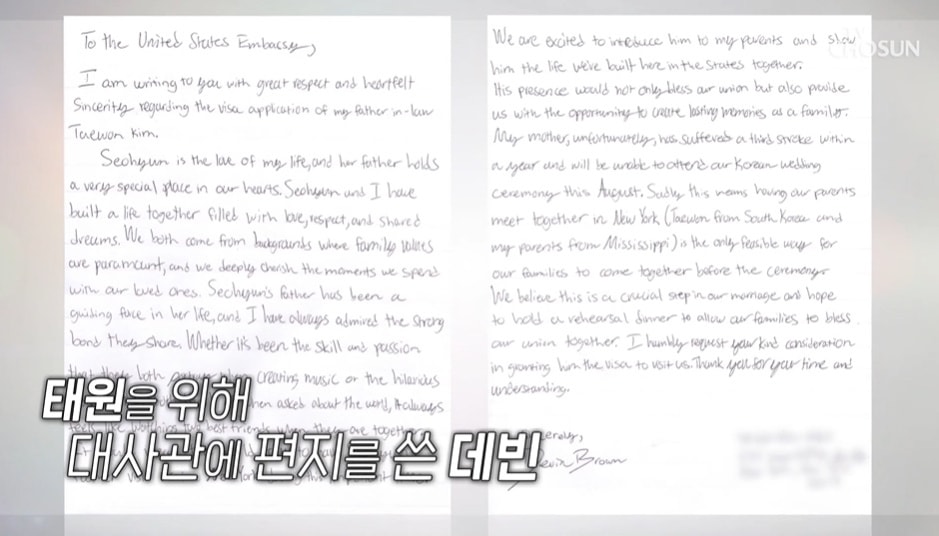 To the United States Embassy,
I am writing to you with great respect and heartfelt
Sincerity regarding the visa application of my father in-law
Taewon Kim.
Seohyun is the love of my life, and her father holds
a very special place in our hearts. Seohyun and I have
built a life together filled with love, respect, and shared
dreams. We both come from backgrounds where family values
are paramount, and we deeply cherish the moments we spend
with our loved ones. Seohyun's father has been a
guiding force in her life, and I have always admired the strong
bond they share. Whether it's been the skill and passion
that they both creating music or the hilarious
when asked about the world, it always
feels like watching two best friends when they are together.
We are excited to introduce him to my parents and show
him the life we've built here in the States together.
His presence would not only bless our union but also provide
us with the opportunity to create lasting memories as a family.
My mother, unfortunately, has suffered a third stroke within
a year and will be unable to attend our Korean wedding
ceremony this August. Sadly this means having our parents
meet together in New York (Taewon from South Korea and
my parents from Mississippi) is the only feasible way for
our families to come together before the ceremony.
We believe this is a crucial step in our marriage and hope
to hold a rehearsal dinner to allow our families to bless
our union together. I humbly request your kind consideration
in granting him the visa to visit us. Thank you for your time and
understanding.
Brown
CHOSUN
태원을 위해
대사관에 편지를 쓴 데빈